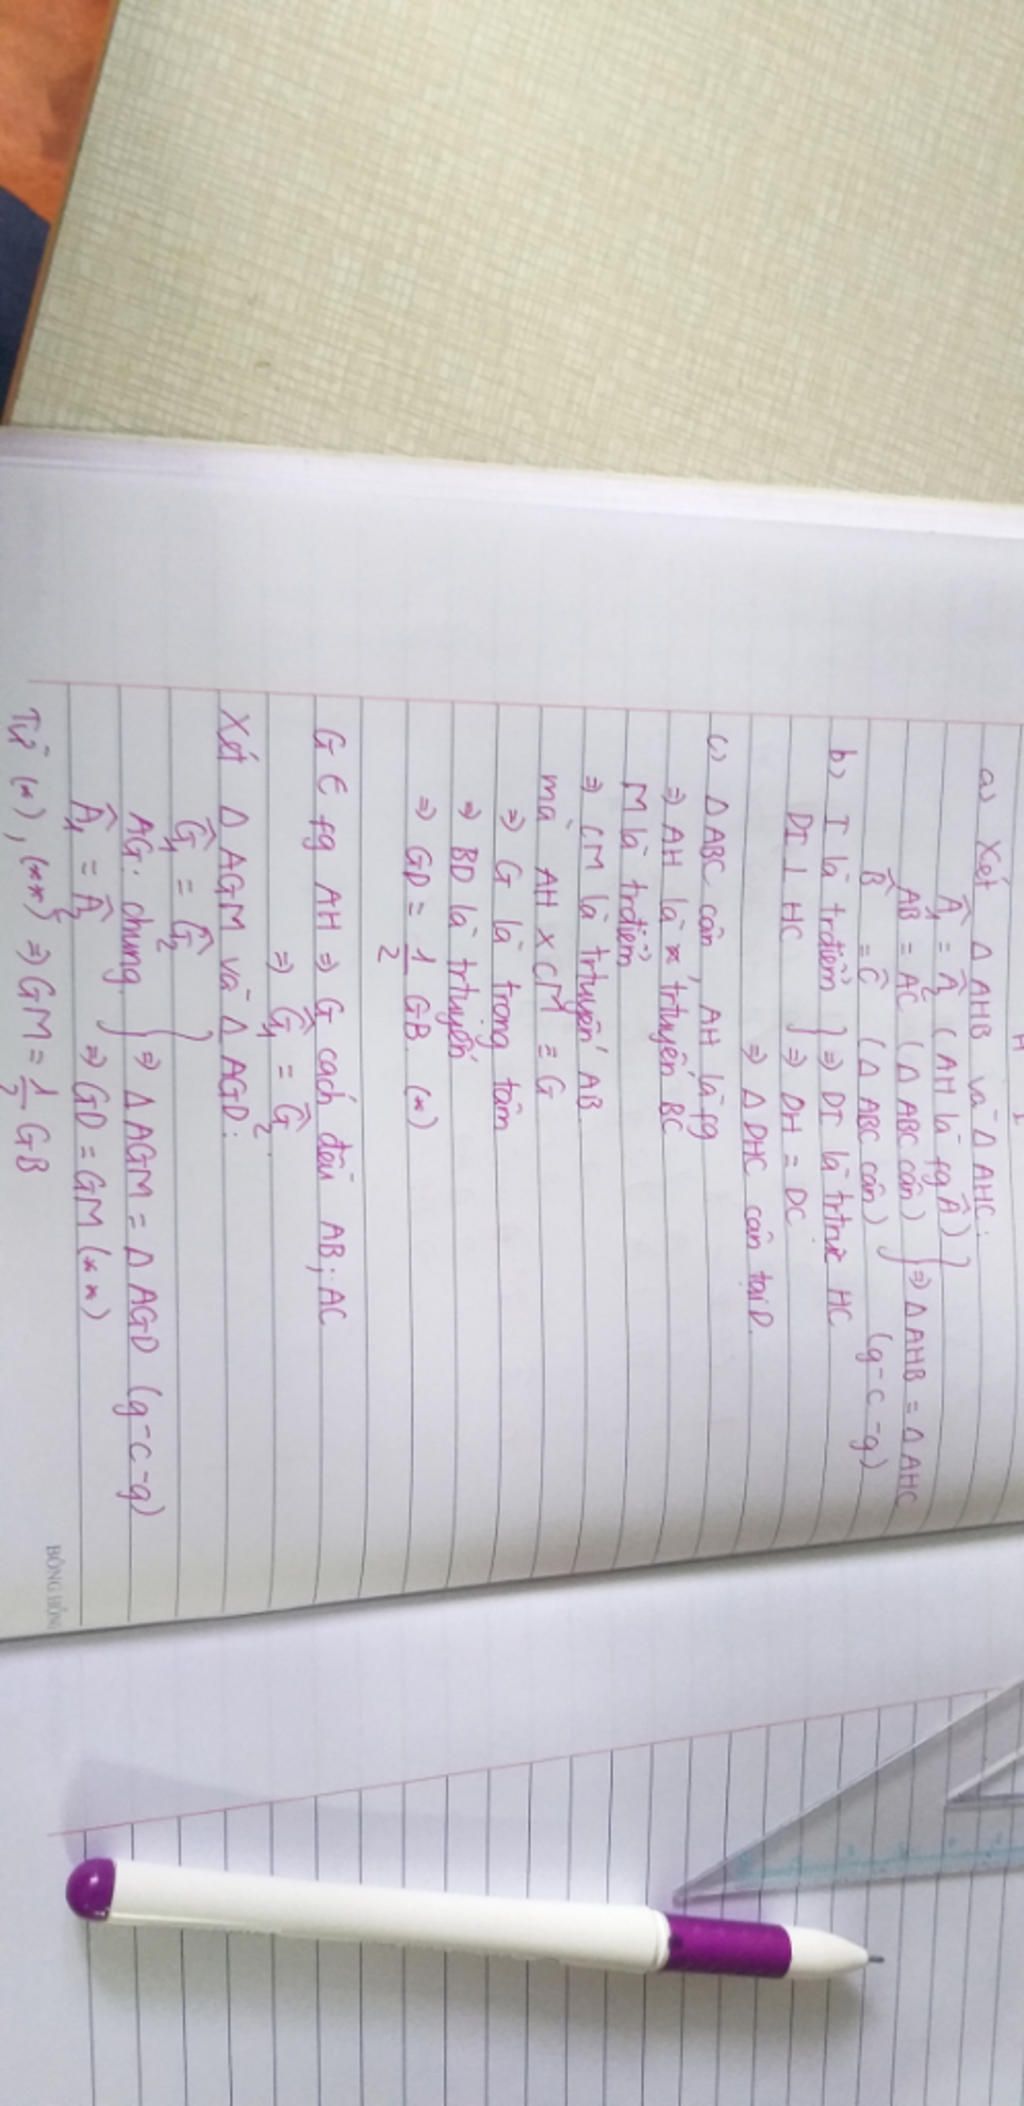 H I
a) Xét Δ AHB và Δ AHC:
Â1 = Â2 (AH là fg Â) }
AB = AC (Δ ABC cân) } ⇒ Δ AHB = Δ AHC
B̂ = Ĉ (Δ ABC cân) (g-c-g)
b) I là trđiểm } ⇒ DI là trtrực HC
DI ⊥ HC } ⇒ DH = DC
⇒ Δ DHC cân tại D.
c) Δ ABC cân, AH là fg
⇒ AH là trtuyến BC
M là trđiểm
⇒ CM là trtuyến AB
mà AH x CM ≡ G
⇒ G là trọng tâm
⇒ BD là trtuyến
⇒ GD = 1/2 GB. (*)
G ∈ fg AH ⇒ G cách đều AB; AC
⇒ Ĝ1 = Ĝ2
Xét Δ AGM và Δ AGD:
Ĝ1 = Ĝ2 }
AG: chung } ⇒ Δ AGM = Δ AGD (g-c-g)
Â1 = Â2 ⇒ GD = GM (**)
Từ (*), (**) ⇒ GM = 1/2 GB